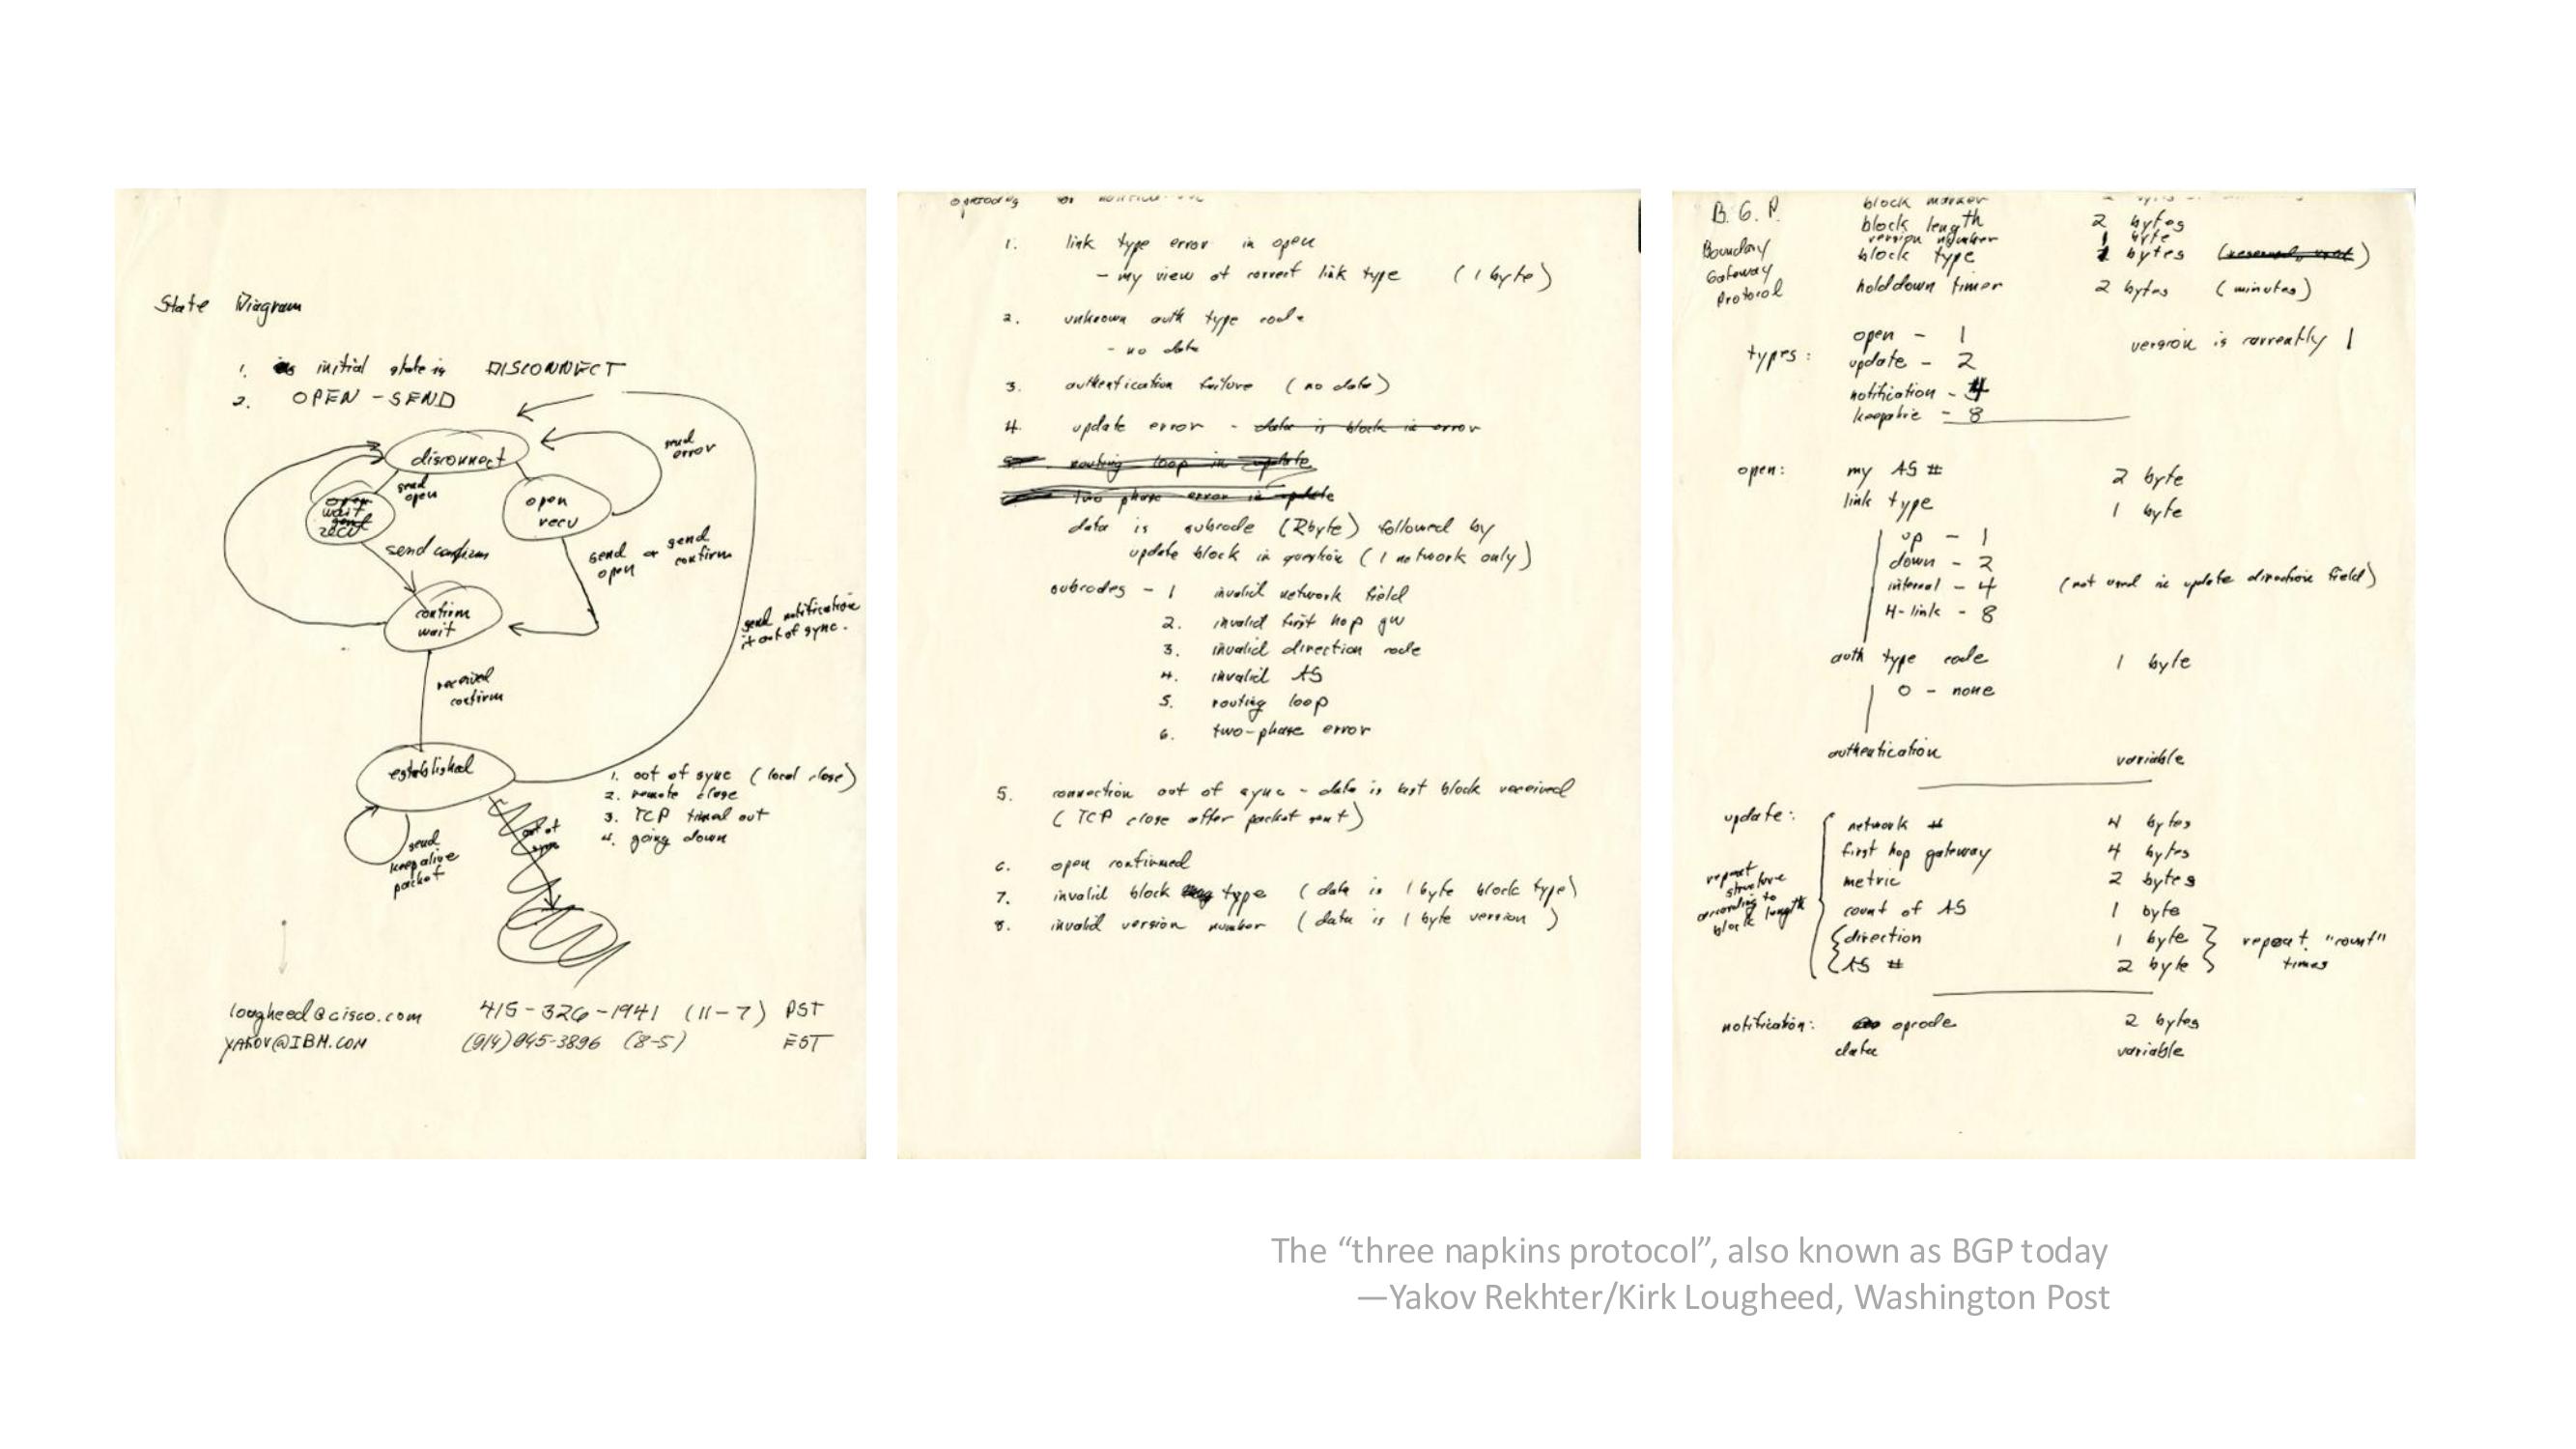 State Diagram
1. initial state is DISCONNECT
2. OPEN - SEND
disconnect
send error
send open
open wait
recv
open recv
send confirm
send open or send confirm
confirm wait
send notification if out of sync.
received confirm
established
1. out of sync (local close)
2. remote close
3. TCP timed out
4. going down
out of sync
send keepalive packet
lougheed@cisco.com 415-326-1941 (11-7) PST
YAKOV@IBM.COM (914) 945-3896 (8-5) EST
1. link type error in open
- my view of correct link type (1 byte)
2. unknown auth type code
- no data
3. authentication failure (no data)
4. update error - data is block in error
5. routing loop in update
two phase error in update
data is subcode (2byte) followed by
update block in question (1 network only)
subcodes - 1 invalid network field
2. invalid first hop gw
3. invalid direction code
4. invalid AS
5. routing loop
6. two-phase error
5. connection out of sync - data is last block received
(TCP close after packet sent)
6. open confirmed
7. invalid block type (data is 1 byte block type)
8. invalid version number (data is 1 byte version)
B.G.P.
Boundary
Gateway
Protocol
block marker
block length 2 bytes
version number 1 byte
block type 1 bytes
holddown timer 2 bytes (minutes)
types: open - 1 version is currently 1
update - 2
notification - 4
keepalive - 8
open: my AS # 2 byte
link type 1 byte
up - 1
down - 2
internal - 4 (not used in update direction field)
H-link - 8
auth type code 1 byte
0 - none
authentication variable
update: network # 4 bytes
first hop gateway 4 bytes
metric 2 bytes
count of AS 1 byte
direction 1 byte
AS # 2 byte
repeat "count" times
repeat structure according to block length
notification: opcode 2 bytes
data variable
The “three napkins protocol”, also known as BGP today
—Yakov Rekhter/Kirk Lougheed, Washington Post